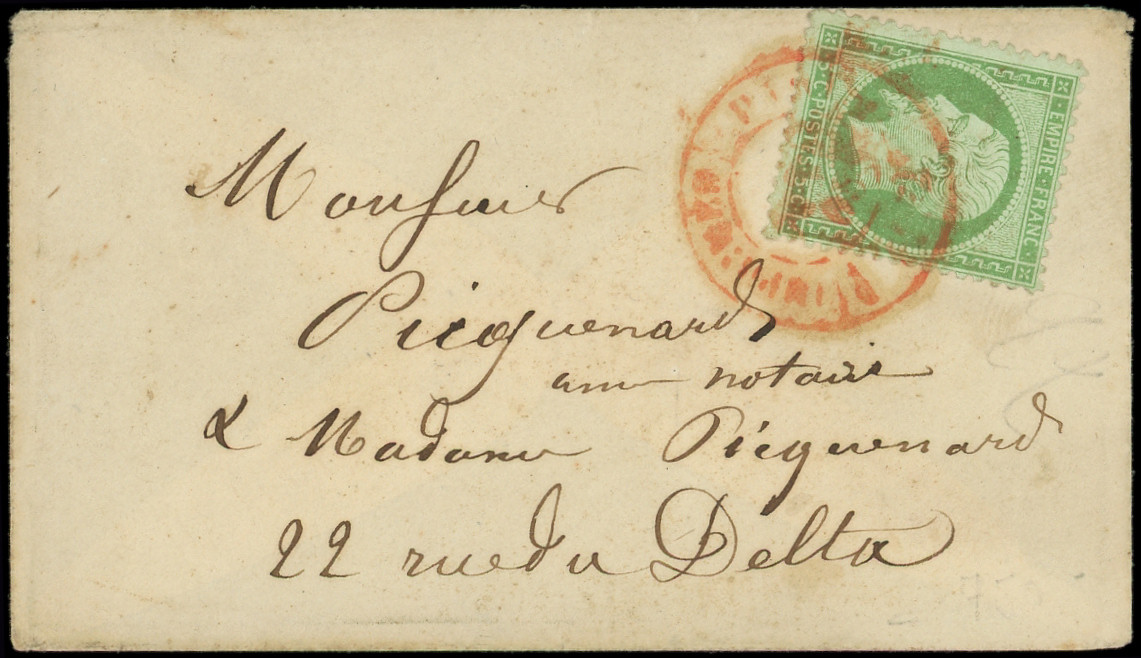 Monsieur
Picquenard
notaire
& Madame Picquenard
22 rue du Delta
EMPIRE·FRANC
5·C·POSTES·5·C